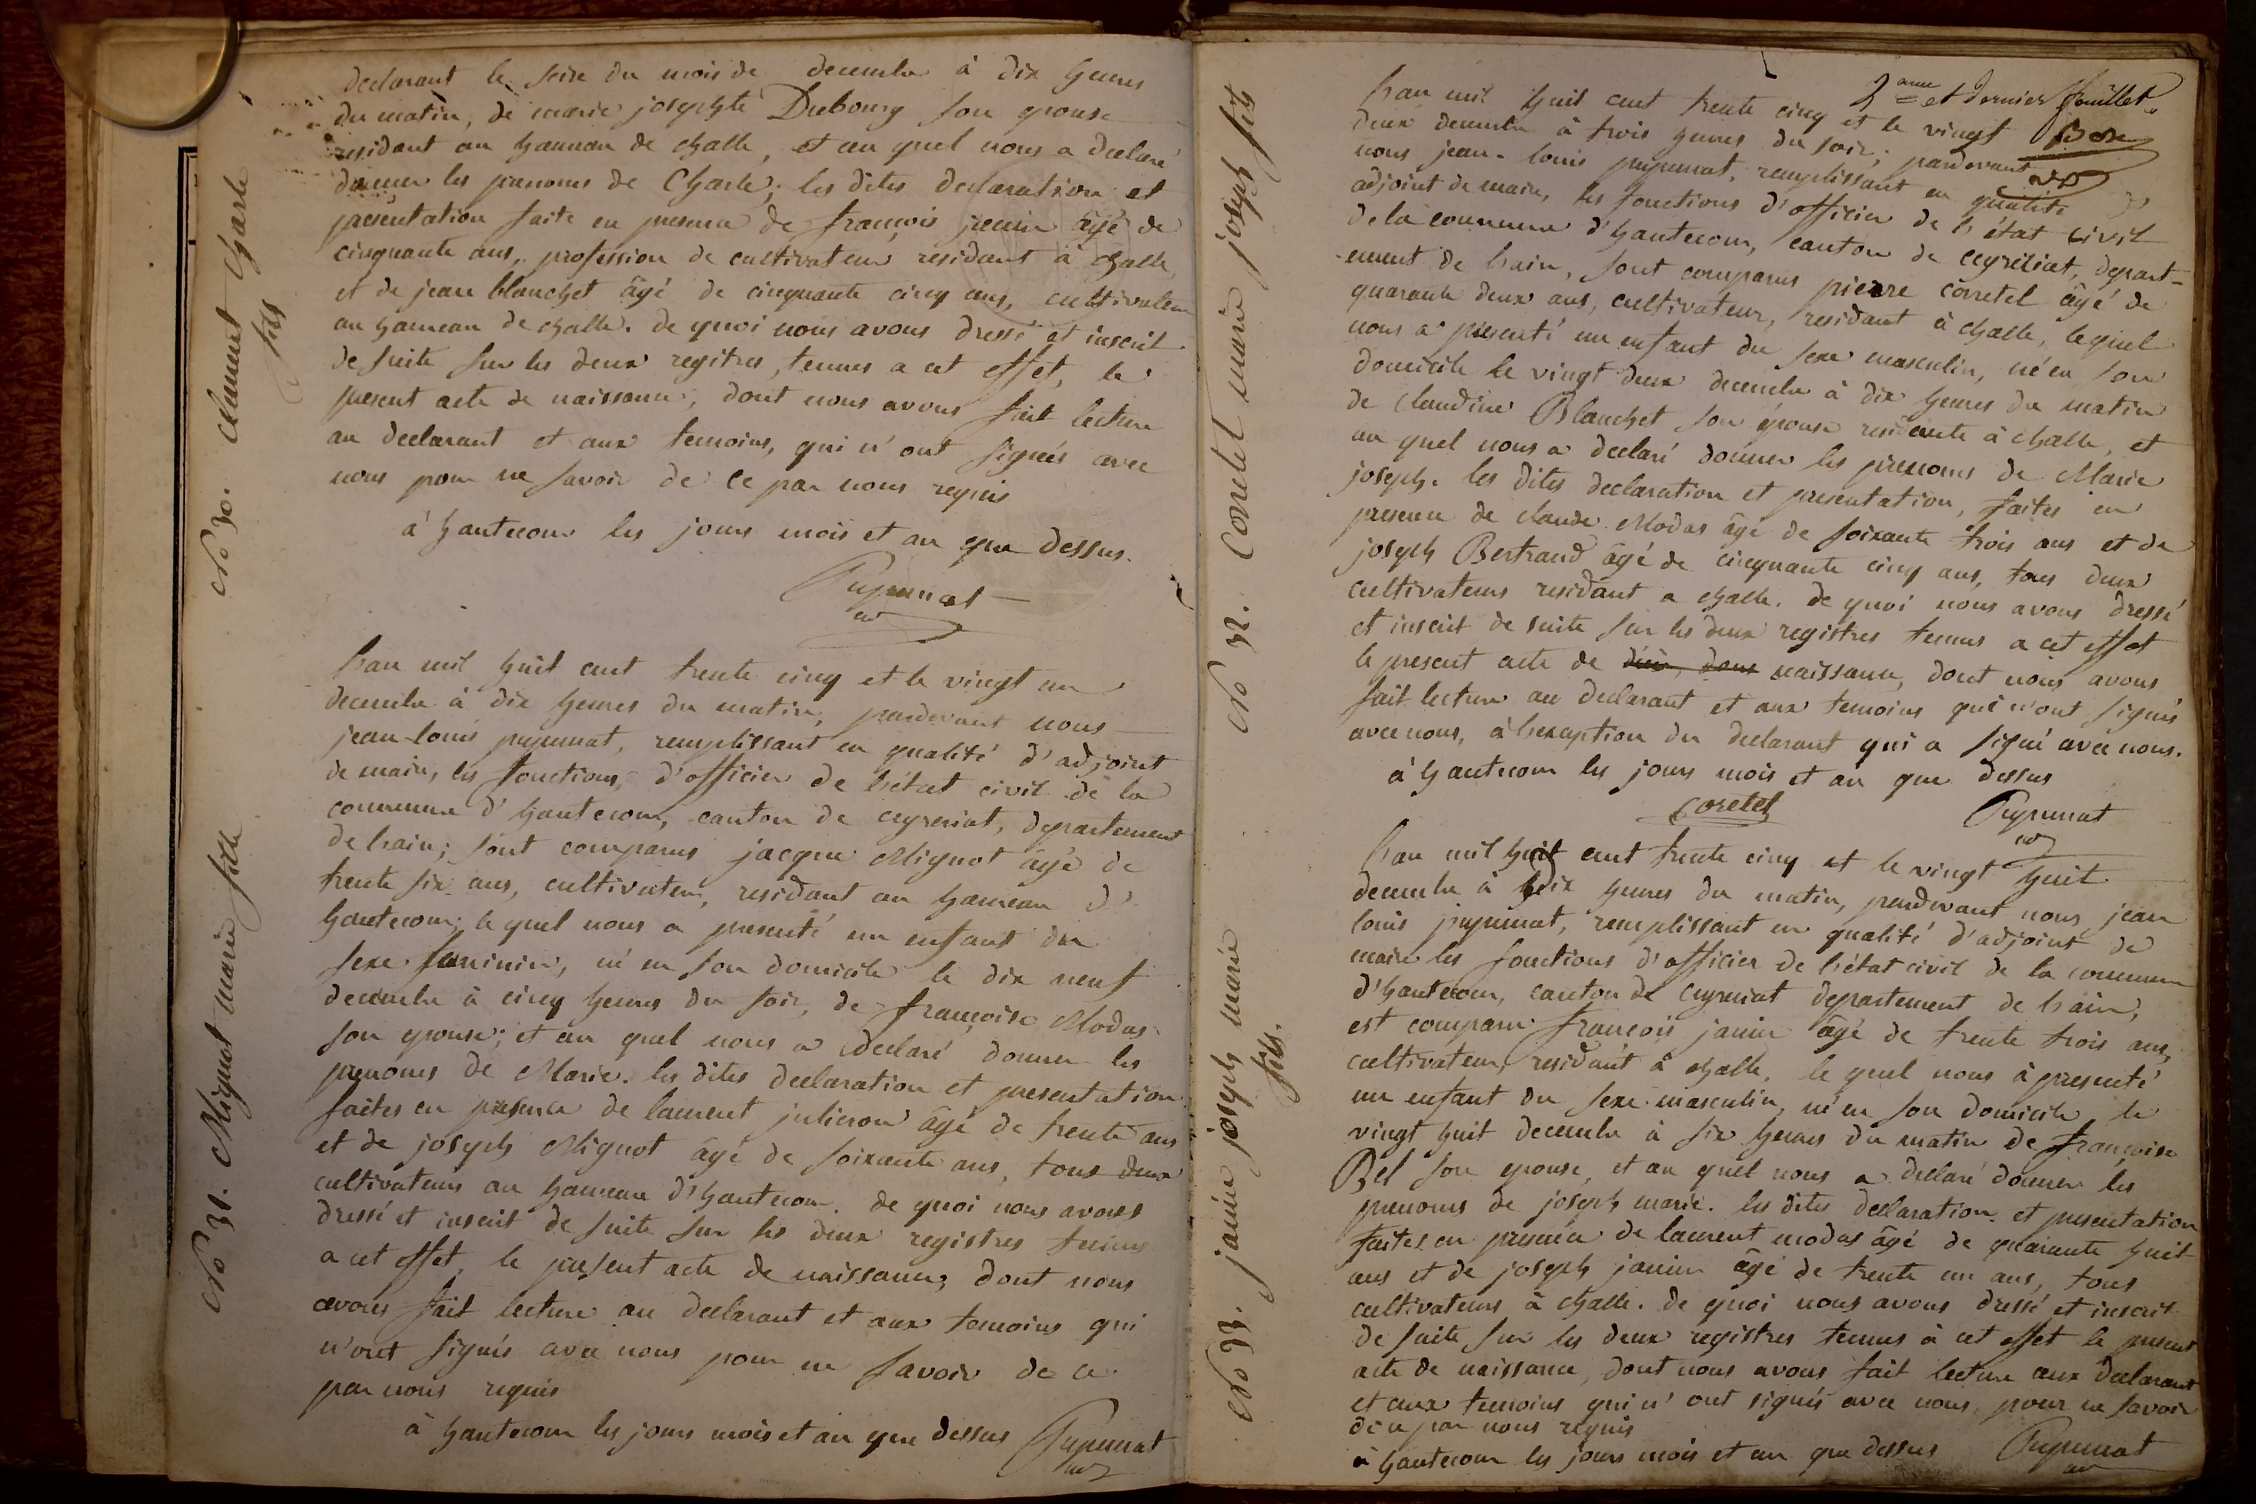 declarant le seize du mois de decembre à dix heures
du matin, de marie josephte Dubourg son epouse
residant au hameau de challe, et au quel nous a declaré
donner les prenoms de Charle; les dites declaration et
presentation faite en presence de françois janin âgé de
cinquante ans, profession de cultivateur residant à challe,
et de jean blanchet âgé de cinquante cinq ans, cultivateur
au hameau de challe. de quoi nous avons dressé et inscrit
de suite sur les deux registres, tenues a cet effet, le
present acte de naissance, dont nous avons fait lecture
au declarant et aux temoins, qui n'ont signés avec
nous pour ne savoir de ce par nous requis
à hautecour les jours mois et an que dessus.
Pupunat
No 30. Clement Charle
fils
L'an mil huit cent trente cinq et le vingt un
decembre à dix heures du matin, pardevant nous
jean-louis pupunat, remplissant en qualité d'adjoint
de maire, les fonctions, d'officier de l'état civil de la
commune d'hautecour, canton de ceyzeriat, departement
de l'ain; sont comparus jacque Mignot âgé de
trente six ans, cultivateur, residant au hameau d'
hautecour; le quel nous a presenté un enfant du
sexe feminin, né en son domicile le dix neuf
decembre à cinq heures du soir, de françoise Modas
son epouse; et au quel nous a declaré donner les
prenoms de Marie. les dites declaration et presentation
faites en presence de laurent julieron âgé de trente ans
et de joseph Mignot âgé de soixante ans, tous deux
cultivateurs au hameau d'hautecour. de quoi nous avons
dressé et inscrit de suite sur les deux registres tenues
a cet effet, le present acte de naissance; dont nous
avons fait lecture au declarant et aux temoins qui
n'ont signés avec nous pour ne savoir de ce
par nous requis
à hautecour les jours mois et an que dessus Pupunat
No 31. Mignot marie fille
3ème et dernier feuillet.
L'an mil huit cent trente cinq et le vingt
deux decembre à trois heures du soir; pardevant
nous jean-louis pupunat, remplissant en qualité d'
adjoint de maire, les fonctions d'officier de l'état civil
de la commune d'hautecour, canton de ceyzériat, depart-
ement de l'ain, sont comparus pierre corretel âgé de
quarante deux ans, cultivateur, residant à challe, lequel
nous a presenté un enfant du sexe masculin, né en son
domicile le vingt deux decembre à dix heures du matin
de claudine Blanchet son épouse residente à challe, et
au quel nous a declaré donner les prenoms de Marie
joseph. les dites declaration et presentation, faites en
presence de claude Modas âgé de soixante trois ans et de
joseph Bertrand âgé de cinquante cinq ans, tous deux
cultivateurs residant a challe. de quoi nous avons dressé
et inscrit de suite sur les deux registres tenues a cet effet
le present acte de naissance, dont nous avons
fait lecture au declarant et aux temoins qui n'ont signés
avec nous, à l'exception du declarant qui a signé avec nous.
à hautecour les jours mois et an que dessus
Coretel Pupunat
No 32. Corretel marie joseph fils
L'an mil huit cent trente cinq et le vingt huit
decembre à dix heures du matin, pardevant nous jean
louis pupunat, remplissant en qualité d'adjoint de
maire les fonctions d'officier de l'état civil de la commune
d'hautecour, canton de ceyzeriat departement de l'ain,
est comparu françois janin âgé de trente trois ans,
cultivateur, residant à challe, le quel nous à presenté
un enfant du sexe masculin, né en son domicile, le
vingt huit decembre à six heures du matin de françoise
Bel son epouse, et au quel nous a declaré donner les
prenoms de joseph marie. les dites declaration et presentation
faites en presence de laurent modas âgé de quarante huit
ans et de joseph janin âgé de trente un ans, tous
cultivateurs à challe. de quoi nous avons dressé et inscrit
de suite sur les deux registres tenues à cet effet le present
acte de naissance, dont nous avons fait lecture aux declarant
et aux temoins qui n'ont signés avec nous pour ne savoir
de ce par nous requis
à hautecour les jours mois et an que dessus Pupunat
No 33. janin joseph marie
fils.